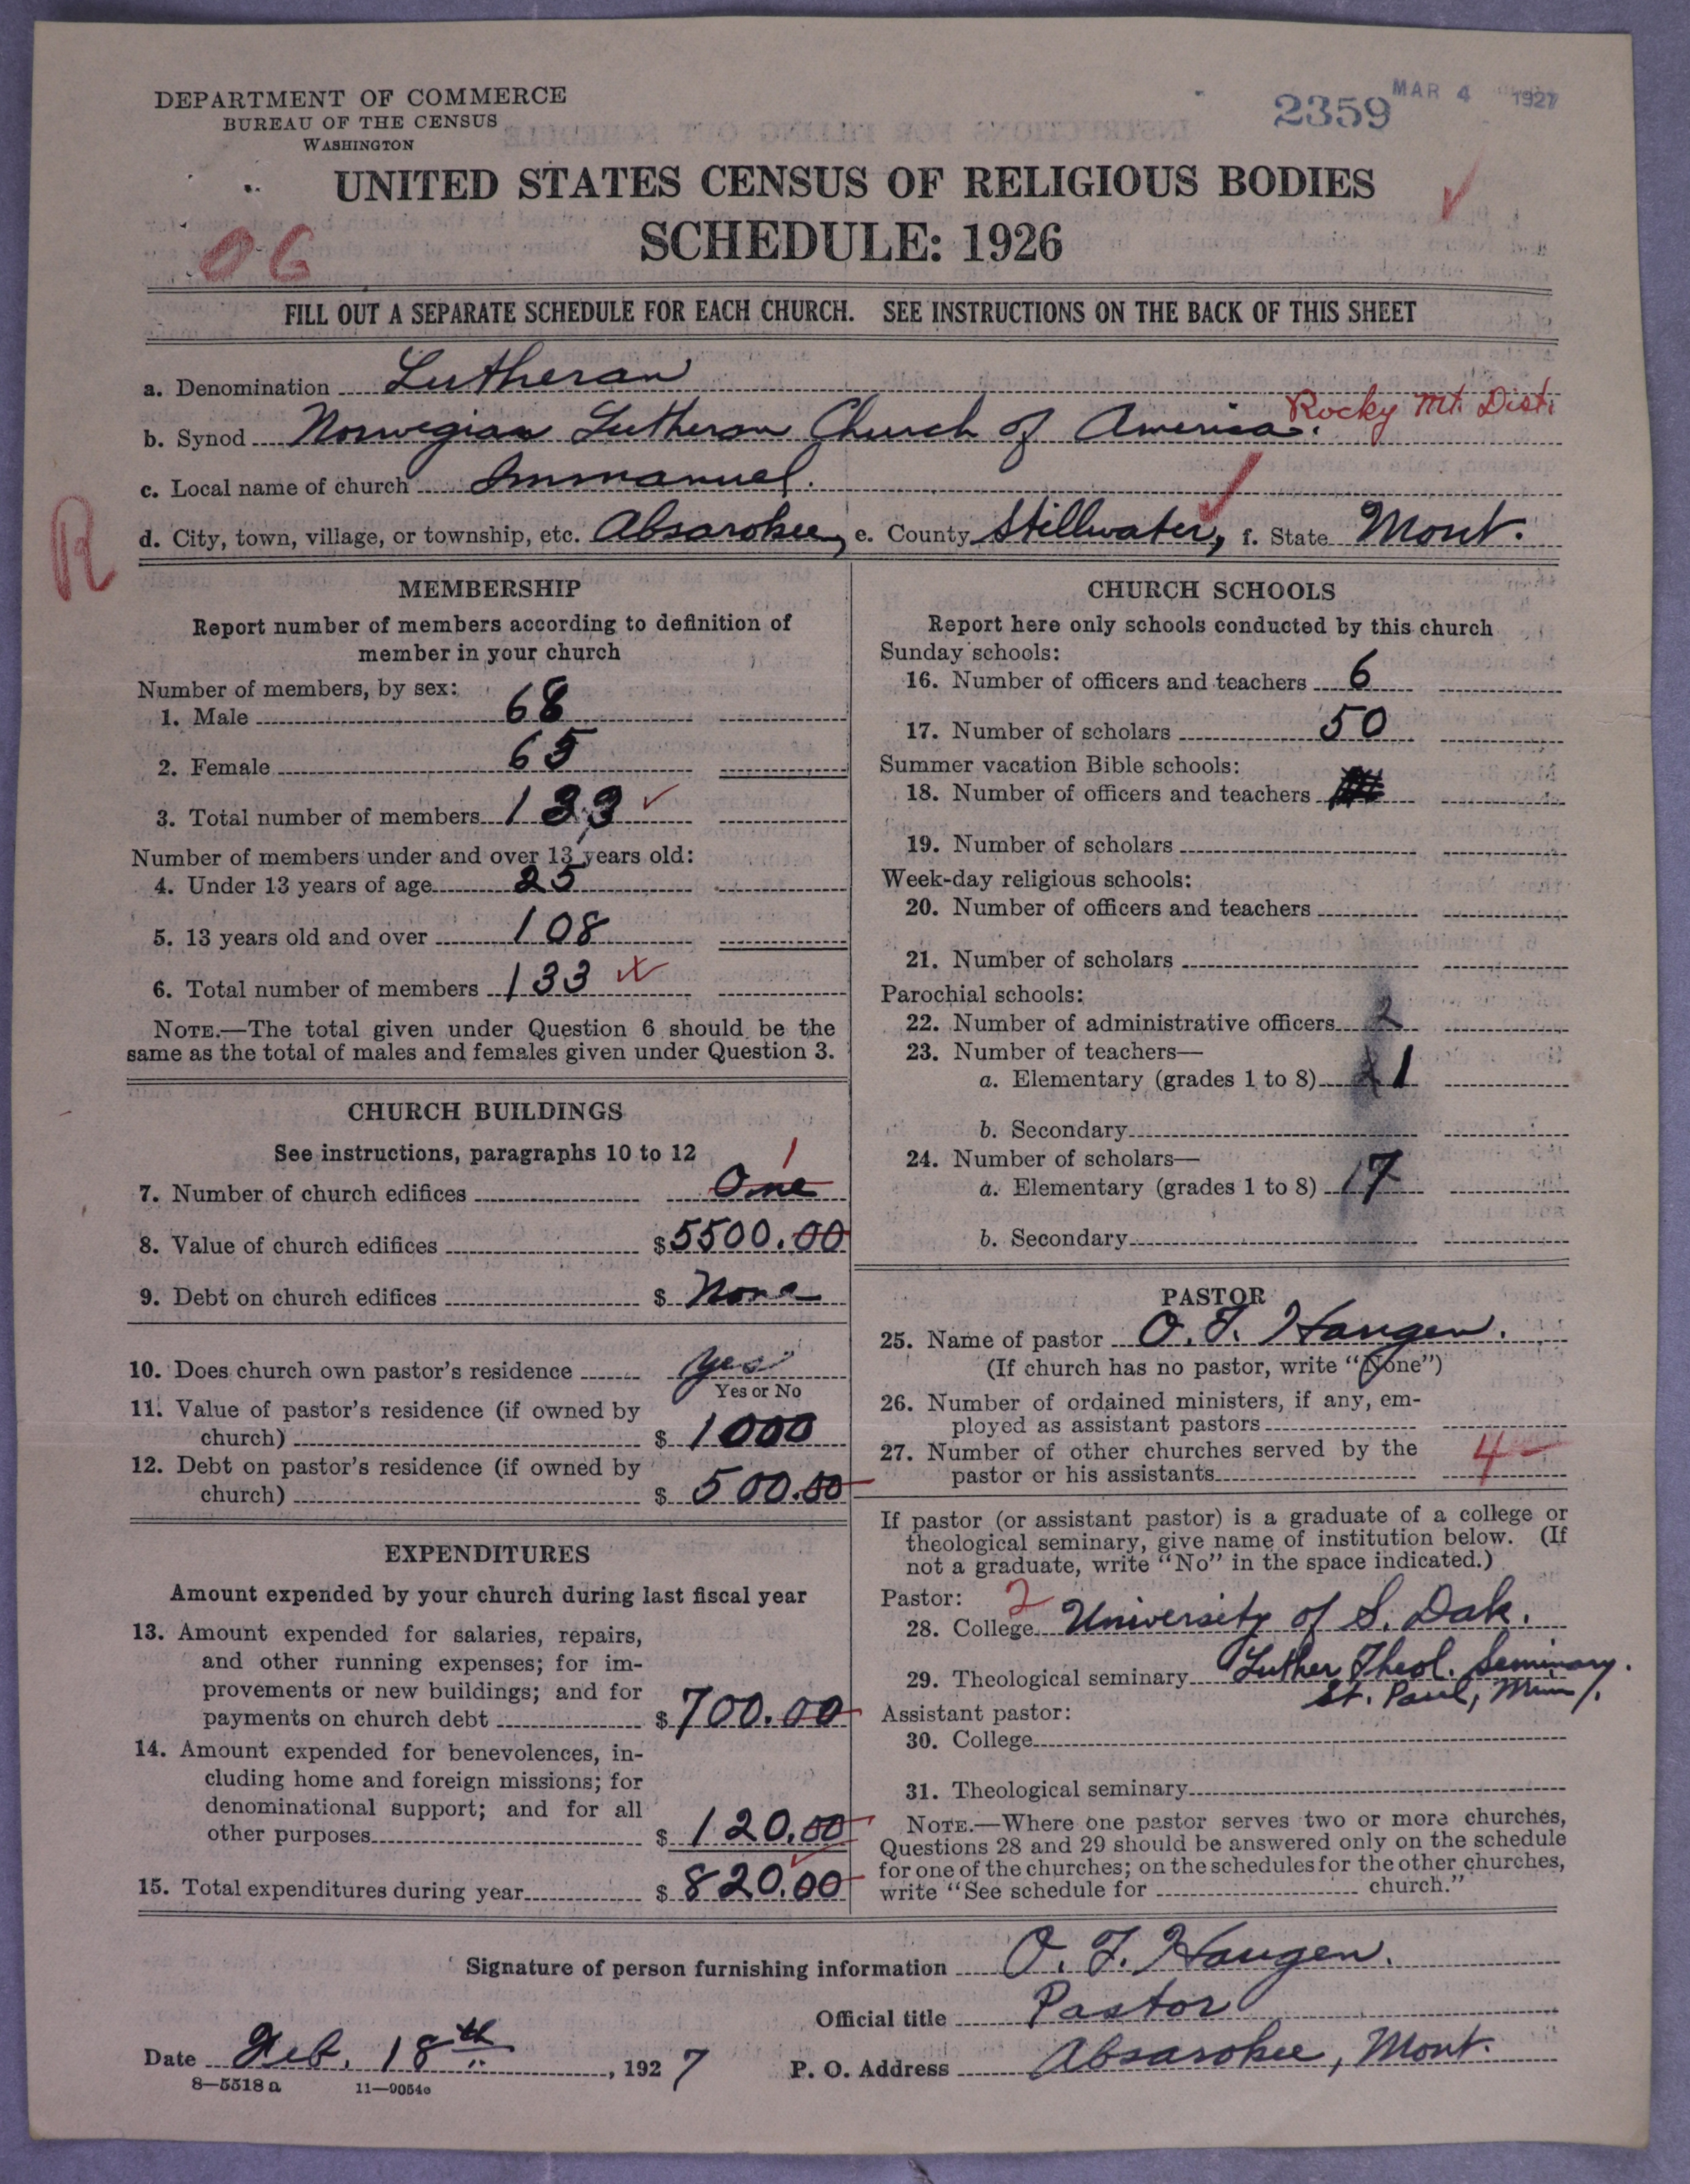 DEPARTMENT OF COMMERCE
BUREAU OF THE CENSUS
WASHINGTON
2359
MAR 4 1927
UNITED STATES CENSUS OF RELIGIOUS BODIES
SCHEDULE: 1926
06
FILL OUT A SEPARATE SCHEDULE FOR EACH CHURCH. SEE INSTRUCTIONS ON THE BACK OF THIS SHEET
a. Denomination Lutheran
Rocky Mt. Dist.
b. Synod Norwegian Lutheran Church of America.
c. Local name of church Immanuel.
R
d. City, town, village, or township, etc. Absarokee, e. County Stillwater, f. State Mont.
MEMBERSHIP
Report number of members according to definition of
member in your church
Number of members, by sex:
1. Male 68
2. Female 65
3. Total number of members 133
Number of members under and over 13 years old:
4. Under 13 years of age 25
5. 13 years old and over 108
6. Total number of members 133
NOTE.—The total given under Question 6 should be the
same as the total of males and females given under Question 3.
CHURCH BUILDINGS
See instructions, paragraphs 10 to 12
1
7. Number of church edifices One
8. Value of church edifices $5500.00
9. Debt on church edifices $ None
10. Does church own pastor's residence Yes
Yes or No
11. Value of pastor's residence (if owned by
church) $ 1000
12. Debt on pastor's residence (if owned by
church) $ 500.00
EXPENDITURES
Amount expended by your church during last fiscal year
13. Amount expended for salaries, repairs,
and other running expenses; for im-
provements or new buildings; and for
payments on church debt $700.00
14. Amount expended for benevolences, in-
cluding home and foreign missions; for
denominational support; and for all
other purposes $ 120.00
15. Total expenditures during year $ 820.00
CHURCH SCHOOLS
Report here only schools conducted by this church
Sunday schools:
16. Number of officers and teachers 6
17. Number of scholars 50
Summer vacation Bible schools:
18. Number of officers and teachers
19. Number of scholars
Week-day religious schools:
20. Number of officers and teachers
21. Number of scholars
Parochial schools:
22. Number of administrative officers 2
23. Number of teachers—
a. Elementary (grades 1 to 8) 1
b. Secondary
24. Number of scholars—
a. Elementary (grades 1 to 8) 17
b. Secondary
PASTOR
25. Name of pastor O. F. Haugen.
(If church has no pastor, write "None")
26. Number of ordained ministers, if any, em-
ployed as assistant pastors
27. Number of other churches served by the
pastor or his assistants 4
If pastor (or assistant pastor) is a graduate of a college or
theological seminary, give name of institution below. (If
not a graduate, write "No" in the space indicated.)
Pastor: 2
28. College University of S. Dak.
29. Theological seminary Luther Theol. Seminary.
St. Paul, Minn.
Assistant pastor:
30. College
31. Theological seminary
NOTE.—Where one pastor serves two or more churches,
Questions 28 and 29 should be answered only on the schedule
for one of the churches; on the schedules for the other churches,
write "See schedule for church."
Signature of person furnishing information O. F. Haugen.
Official title Pastor
Date Feb. 18th, 1927 P. O. Address Absarokee, Mont.
8—5518 a 11—9054a